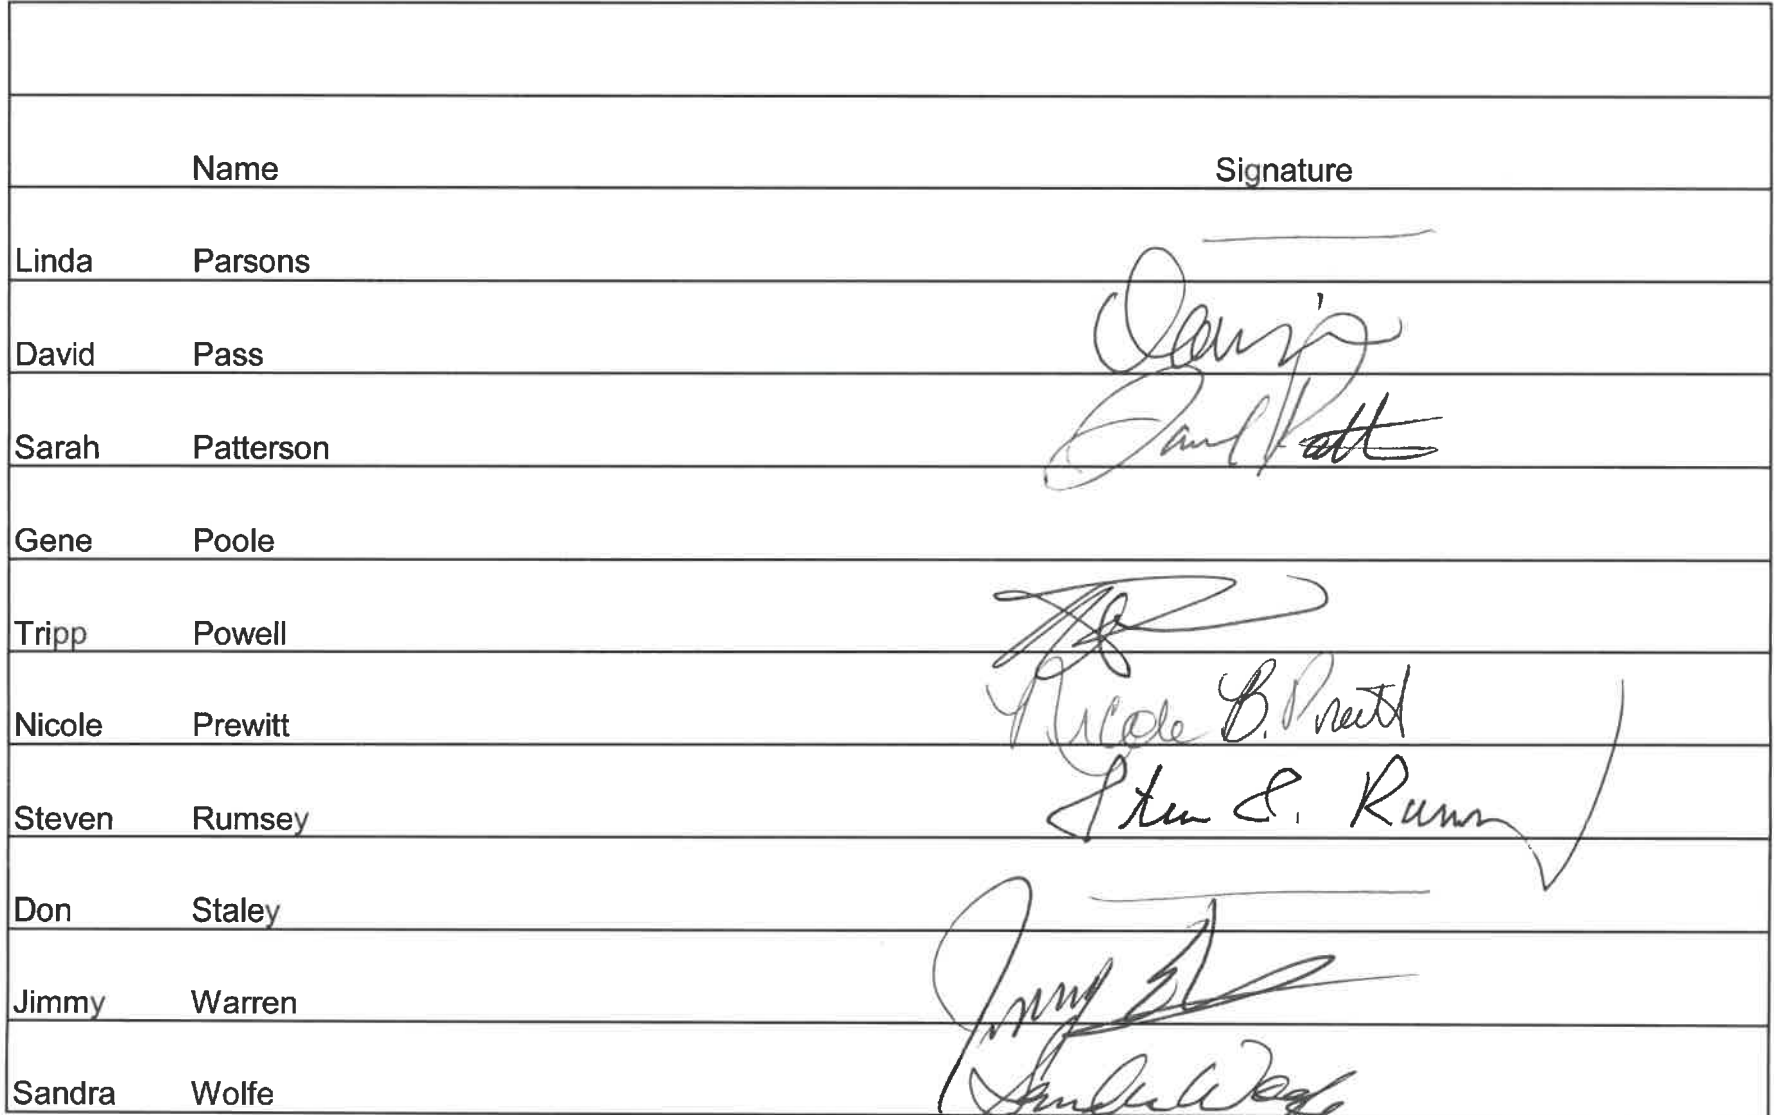 Name Signature
Linda Parsons
David Pass
Sarah Patterson
Gene Poole
Tripp Powell
Nicole Prewitt Nicole B. Prewitt
Steven Rumsey Steven E. Rumsey
Don Staley
Jimmy Warren Jimmy
Sandra Wolfe Sandra Wolfe